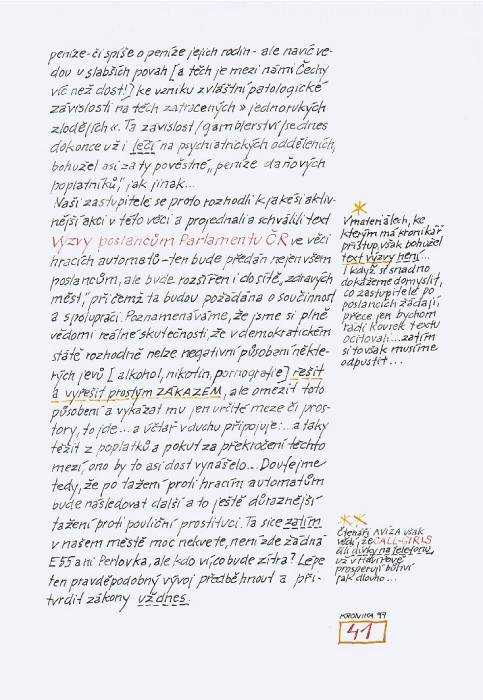 peníze-či spíše o peníze jejich rodin - ale navíc ve-
dou u slabších povah [a těch je mezi námi Čechy
víc než dost!] ke vzniku zvláštní patologické
závislosti na těch zatracených » jednorukých
zlodějích «. Ta závislost/gamblerství/se dnes
dokonce už i léčí na psychiatrických odděleních,
bohužel asi za ty pověstné „peníze daňových
poplatníků", jak jinak...
Naši zastupitelé se proto rozhodli k jakési aktiv-
nější akci v této věci a projednali a schválili text
Výzvy poslancům Parlamentu ČR ve věci
hracích automatů-ten bude předán nejen všem
poslancům, ale bude rozšířen i do sítě „zdravých
měst", při čemž ta budou požádána o součinnost
a spolupráci. Poznamenáváme, že jsme si plně
vědomi reálné skutečnosti, že v demokratickém
státě rozhodně nelze negativní působení někte-
rých jevů [alkohol, nikotin, pornografie] řešit
a vyřešit prostým ZÁKAZEM, ale omezit toto
působení a vykázat mu jen určité meze či pros-
tory, to jde... a účtař v duchu připojuje:...a taky
těžit z poplatků a pokut za překročení těchto
mezí, ono by to asi dost vynášelo... Doufejme
tedy, že po tažení proti hracím automatům
bude následovat další a to ještě důraznější
tažení proti pouliční prostituci. Ta sice zatím
v našem městě moc nekvete, není zde žádná
E55 ani Perlovka, ale kdo ví, co bude zítra? Lépe
ten pravděpodobný vývoj předběhnout a při-
tvrdit zákony už dnes.
V materiálech, ke
kterým má kronikář
přístup, však bohužel
text výzvy není...
I když si snadno
dokážeme domyslit,
co zastupitelé po
poslancích žádají,
přece jen bychom
rádi kousek textu
ocitovali...zatím
si to však musíme
odpustit...
Čtenáři AVÍZA však
vědí, že CALL-GIRLS
čili dívky na telefonu
už v
prosperují bůhví
jak dlouho...
KRONIKA 99
41